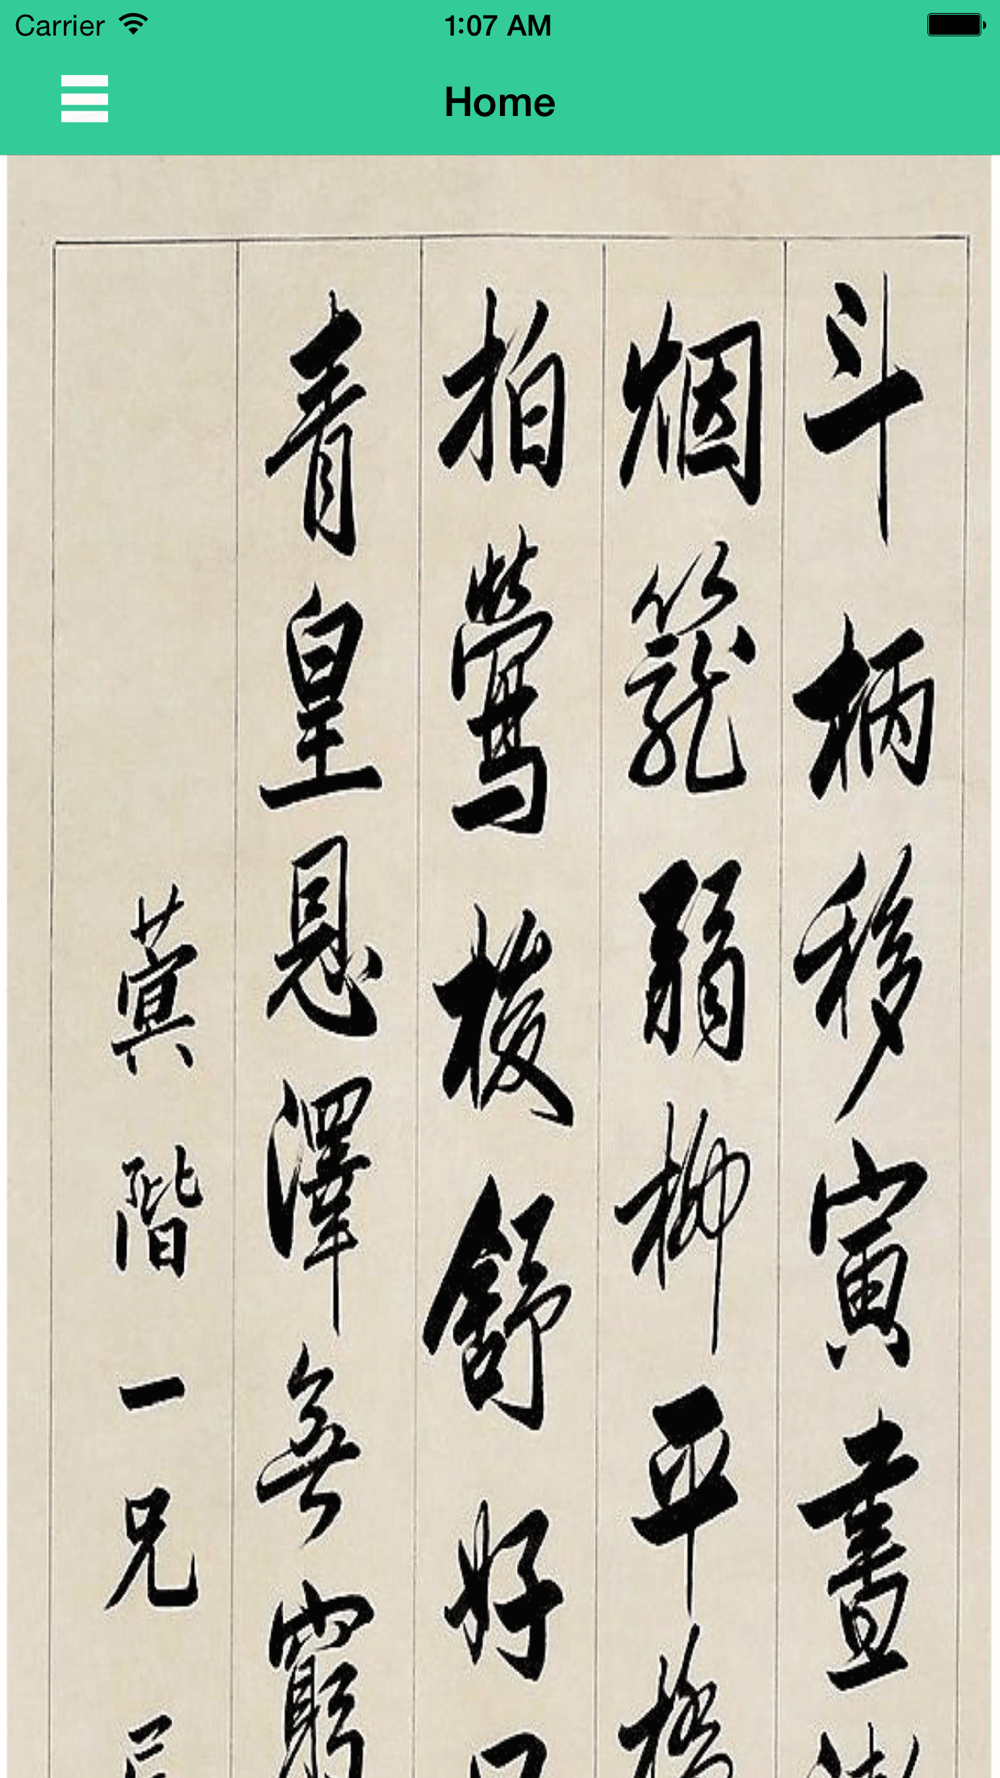 Carrier 1:07 AM
Home
斗柄移寅晝
烟籠弱柳平橋
拍鶯梭舒好
青皇恩澤無窮
蓂階一兄